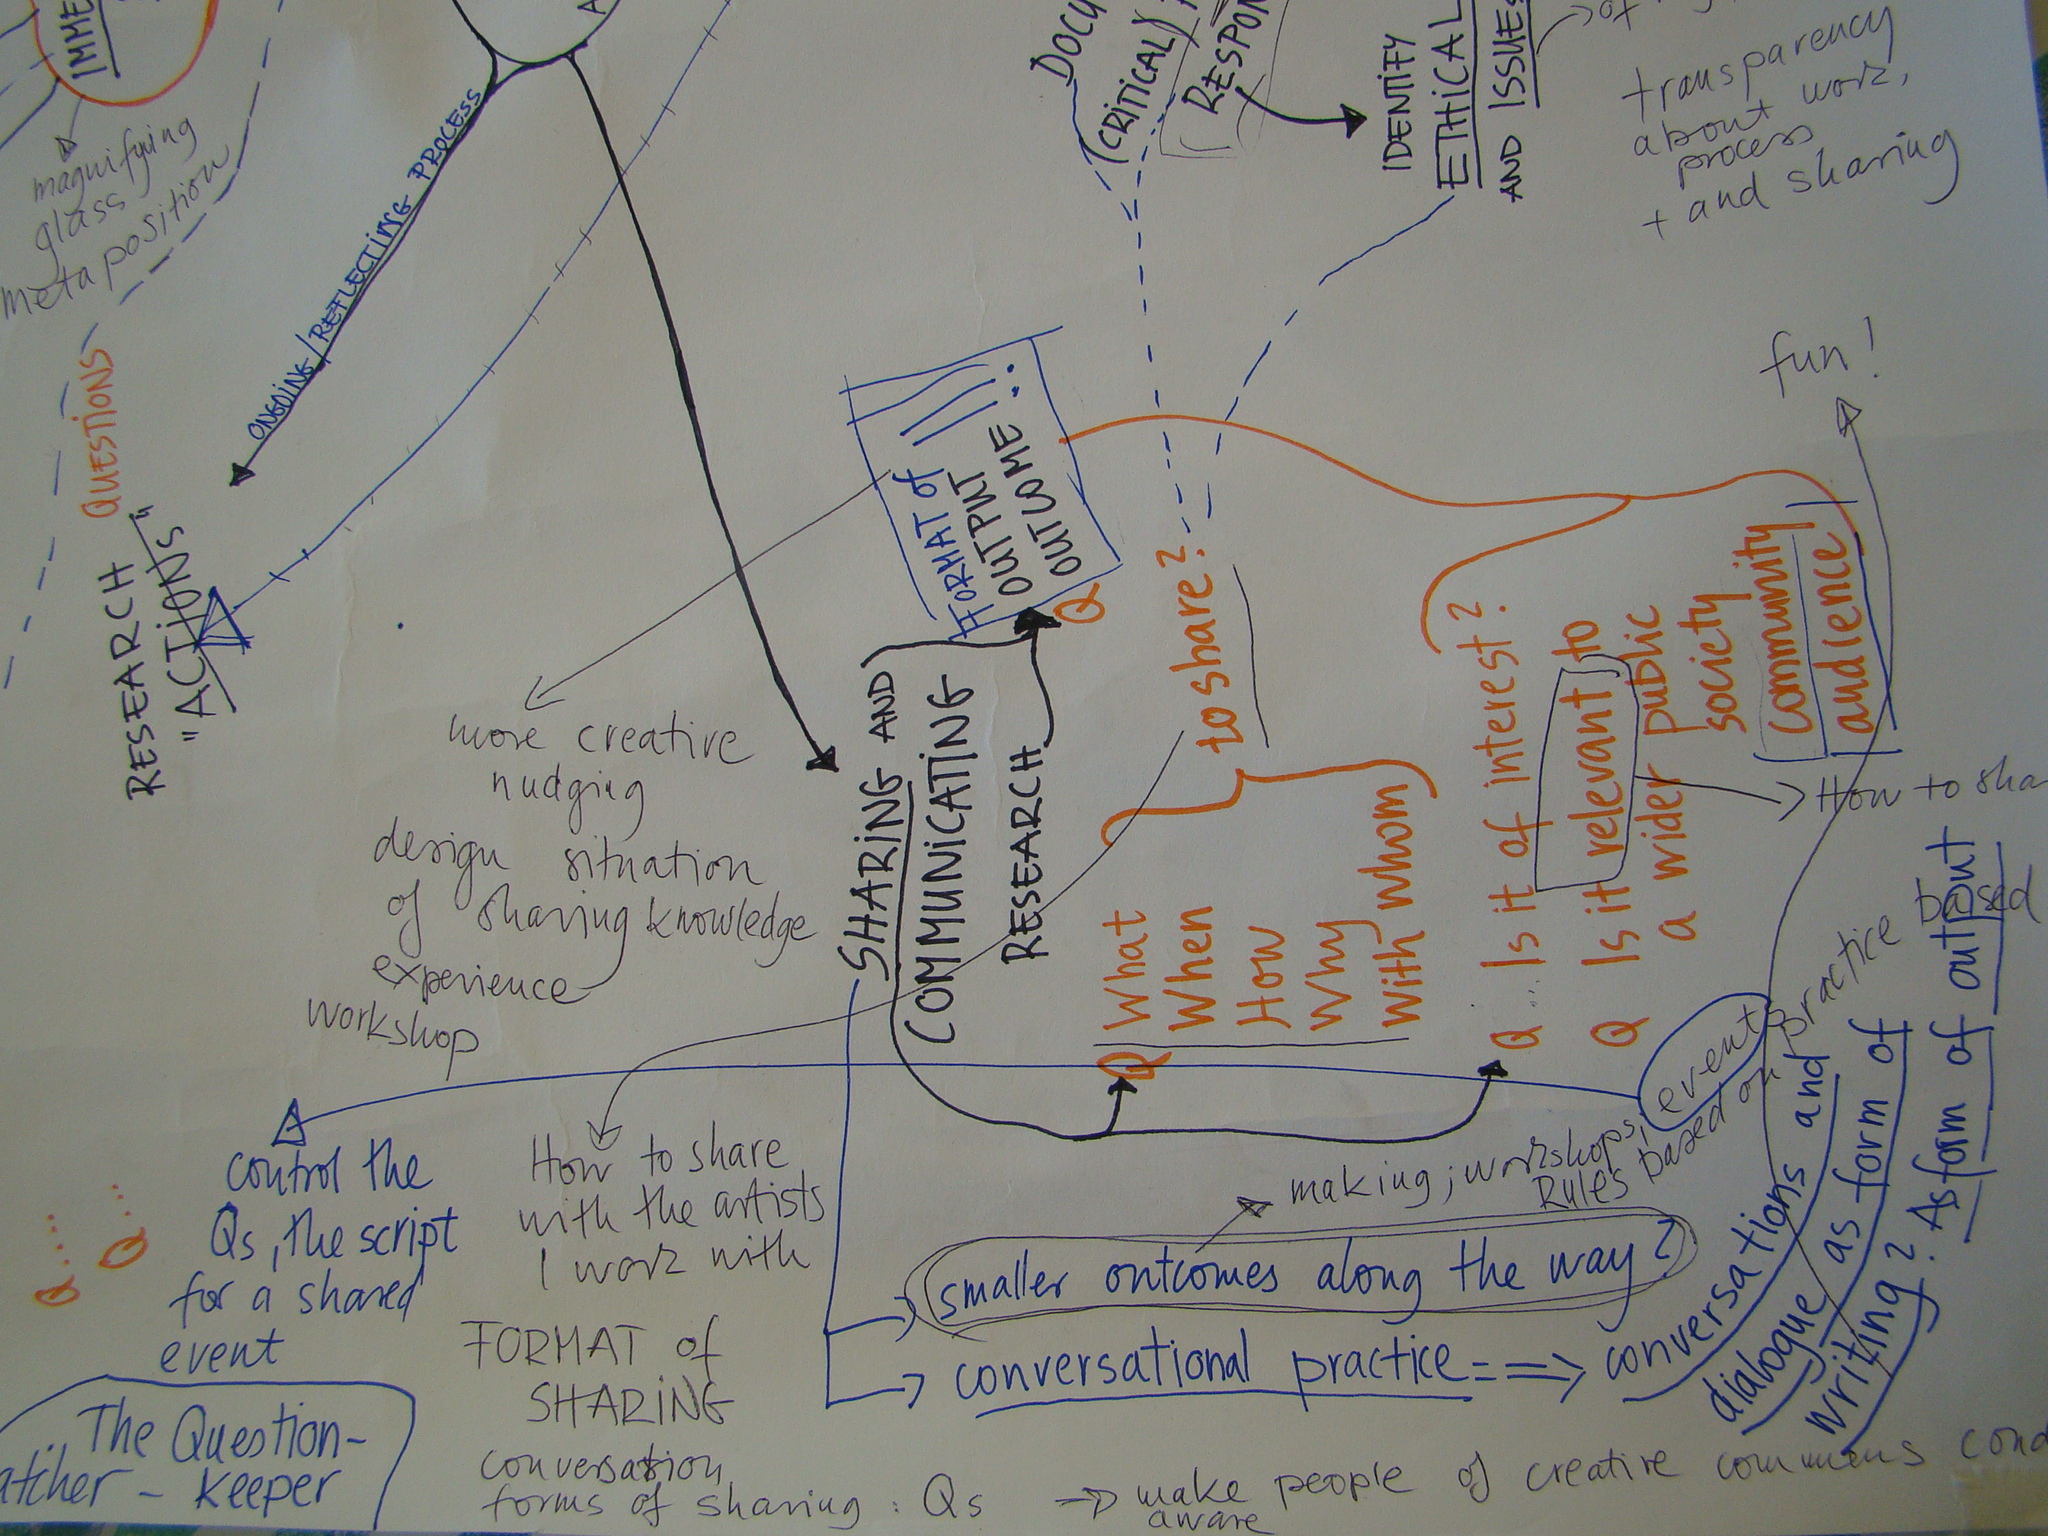 IMME
magnifying
glass
meta position
ONGOING/REFLECTING PROCESS
QUESTIONS
RESEARCH
"ACTIONS"
DOCU
(CRITICAL)
RESPON
IDENTIFY
ETHICAL
AND ISSUES
of
transparency
about work,
process
+ and sharing
fun!
FORMAT of
OUTPUT
OUTCOME...
more creative
nudging
design situation
of sharing knowledge
experience
workshop
SHARING AND
COMMUNICATING
RESEARCH
Q
Q What
When
How
Why
with whom
to share?
Q ... Is it of interest?
Q Is it relevant to
a wider public
society
community
audience
How to sha
control the
Qs, the script
for a shared
event
Q....
Q...
How to share
with the artists
I work with
making; workshops; events
Rules based on practice based
smaller outcomes along the way?
conversational practice ===> conversations and
dialogue as form of
writing? As form of output
FORMAT of
SHARING
conversation
forms of sharing: Qs -> make people of creative commons cond
aware
The Question-
atcher - keeper